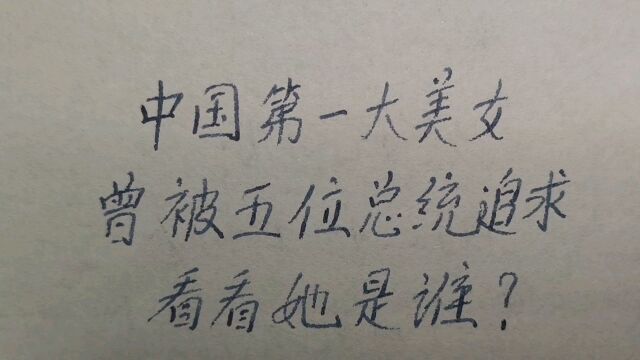 中国第一大美女
曾被五位总统追求
看看她是谁?